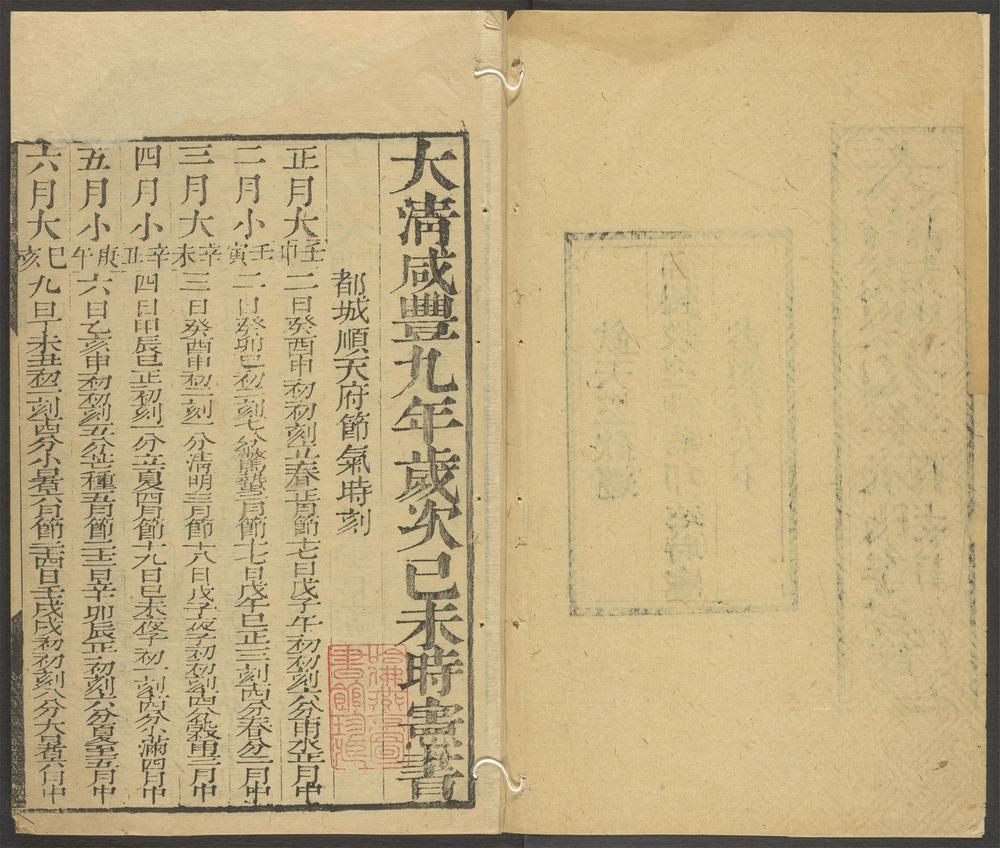 大清咸豐九年歲次己未時憲書
都城順天府節氣時刻
正月大壬申二日癸酉申初初刻立春正月節十七日戊子午初初刻六分雨水正月中
二月小壬寅二日癸卯巳初一刻七分驚蟄二月節十七日戊午巳正三刻四分春分二月中
三月大辛未三日癸酉申初二刻一分清明三月節十八日戊子夜子初初刻四分穀雨三月中
四月小辛丑四日甲辰巳正初刻一分立夏四月節十九日己未夜子初一刻四分小滿四月中
五月小庚午六日乙亥申初初刻五分芒種五月節二十二日辛卯辰正初刻六分夏至五月中
六月大己亥九日丁未丑初二刻四分小暑六月節二十四日壬戌戌初初刻八分大暑六月中